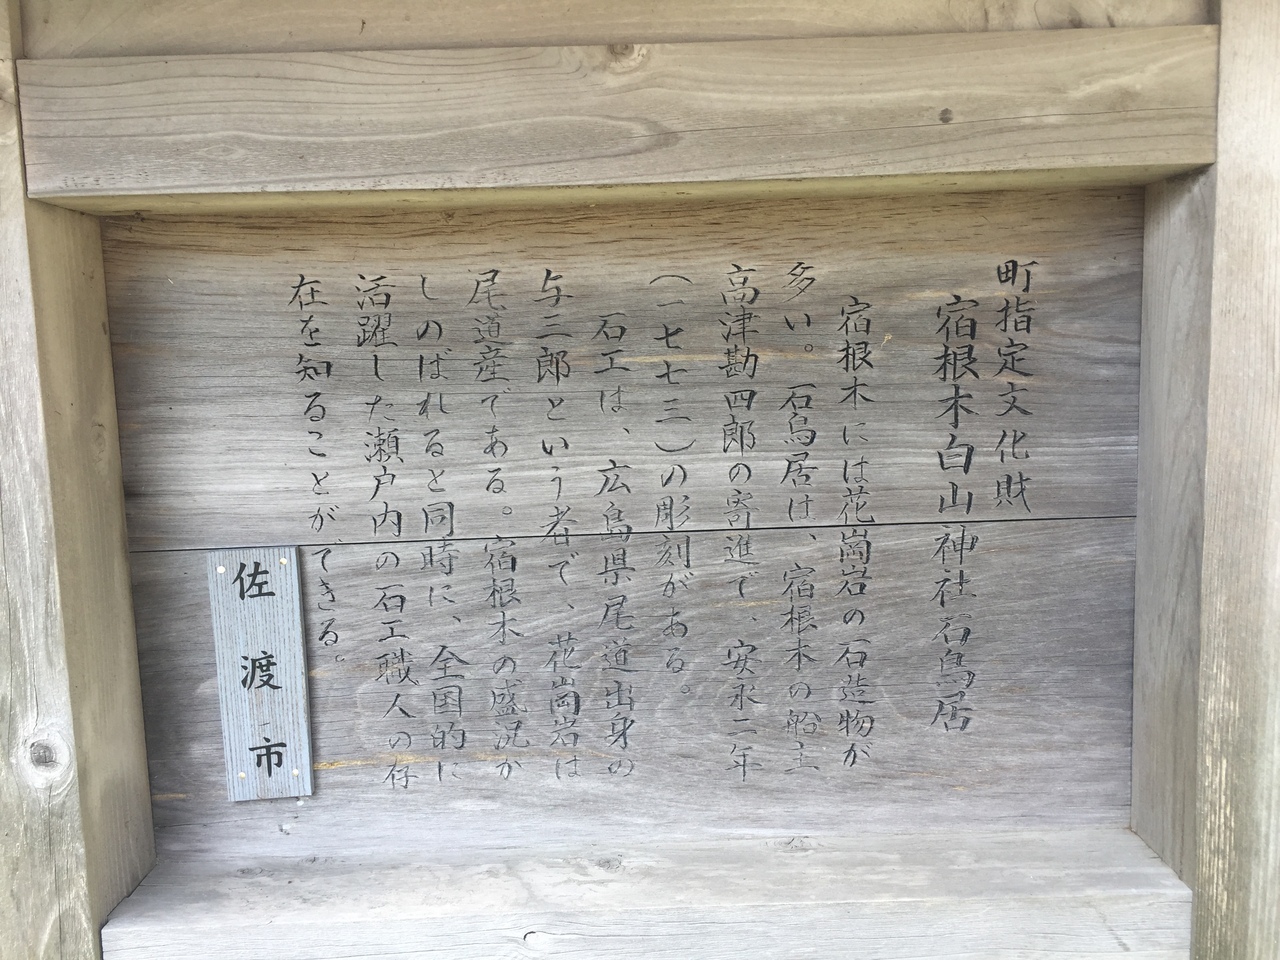 町指定文化財
宿根木白山神社石鳥居
宿根木には花崗岩の石造物が
多い。石鳥居は、宿根木の船主
高津勘四郎の寄進で、安永二年
(一七七三)の彫刻がある。
石工は、広島県尾道出身の
与三郎という者で、花崗岩は
尾道産である。宿根木の盛況が
しのばれると同時に、全国的に
活躍した瀬戸内の石工職人の存
在を知ることができる。
佐渡市